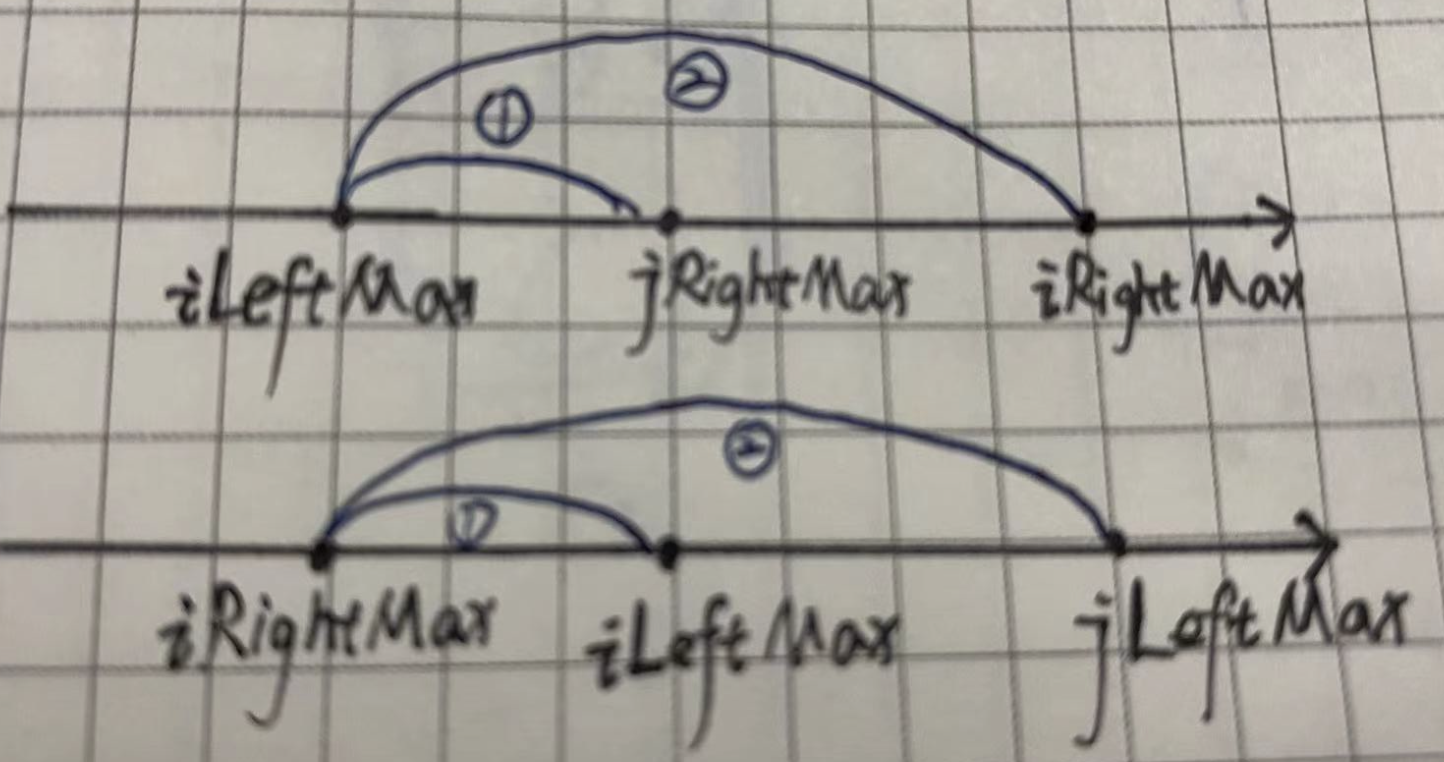 ① ②
iLeftMax jRightMax iRightMax
②
①
iRightMax iLeftMax jLeftMax